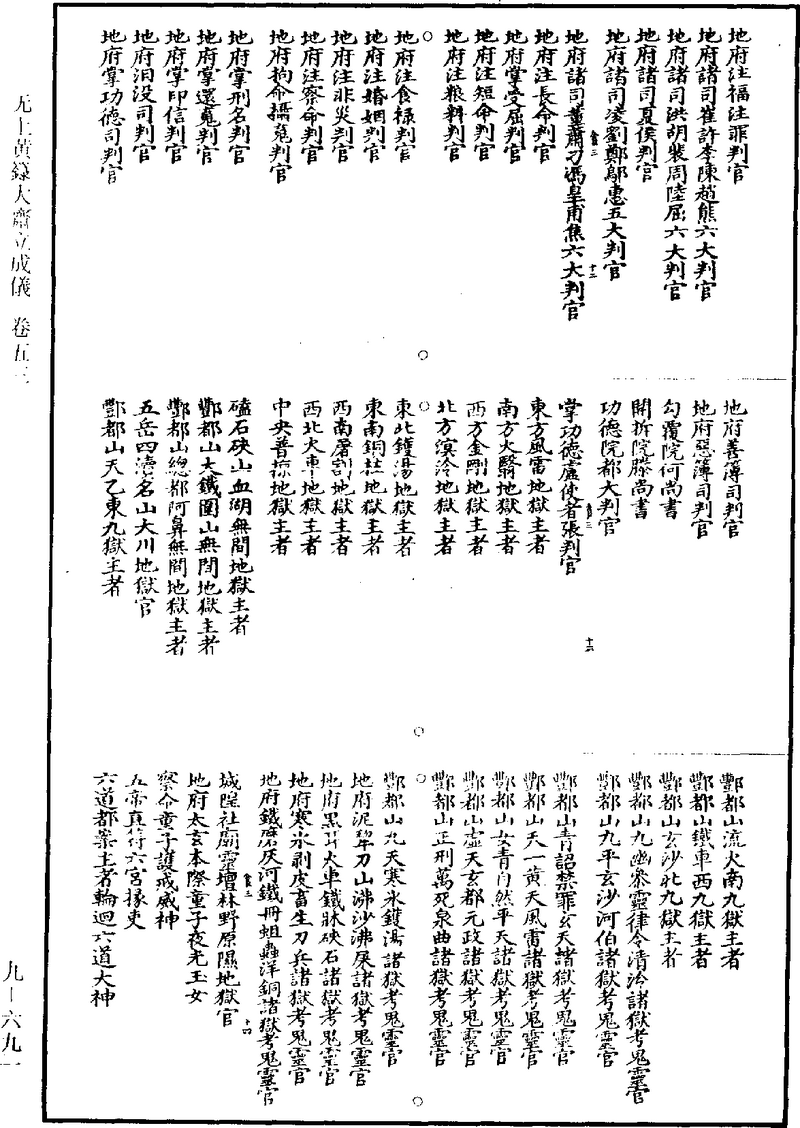 地府注福注罪判官
地府諸司崔許李陳趙熊六大判官
地府諸司洪胡裴周陸屈六大判官
地府諸司夏侯判官
地府諸司凌劉鄭鄔惠五大判官
地府諸司董蕭刁馮皇甫焦六大判官
地府注長命判官
地府掌受屈判官
地府注短命判官
地府注粮料判官
地府注食祿判官
地府注婚姻判官
地府注非災判官
地府注察命判官
地府拘命攝𩲸判官
地府掌刑名判官
地府掌還𩲸判官
地府掌印信判官
地府汨没司判官
地府掌功德司判官
地府善簿司判官
地府惡簿司判官
勾覆院何尚書
開拆院滕尚書
功德院都大判官
掌功德處使者張判官
東方風雷地獄主者
南方火翳地獄主者
西方金剛地獄主者
北方溟泠地獄主者
東北鑊湯地獄主者
東南銅柱地獄主者
西南屠割地獄主者
西北火車地獄主者
中央普掠地獄主者
磕石硤山血湖無間地獄主者
酆都山大鐵圍山無間地獄主者
酆都山總都阿鼻無間地獄主者
五岳四瀆名山大川地獄官
酆都山天乙東九獄主者
酆都山流火南九獄主者
酆都山鐵車西九獄主者
酆都山玄沙北九獄主者
酆都山九幽泰靈律令清泠諸獄考鬼靈官
酆都山九平玄沙河伯諸獄考鬼靈官
酆都山青詔禁罪玄天諸獄考鬼靈官
酆都山天一黄天風雷諸獄考鬼靈官
酆都山女青自然平天諸獄考鬼靈官
酆都山虛天玄都元政諸獄考鬼靈官
酆都山正刑萬死泉曲諸獄考鬼靈官
酆都山九天寒氷鑊湯諸獄考鬼靈官
地府泥犂刀山沸沙沸屎諸獄考鬼靈官
地府黑耳火車鐵牀硤石諸獄考鬼靈官
地府寒氷剥皮畜生刀兵諸獄考鬼靈官
地府鐵磨灰河鐵冊蛆蟲洋銅諸獄考鬼靈官
城隍社廟靈壇林野原隰地獄官
地府太玄本際童子夜光玉女
察命童子護戒威神
五帝真符六宮掾吏
六道都案主者輪迴六道大神
十二
十三
十四
无上黄籙大齋立成儀 卷五三
九－六九一